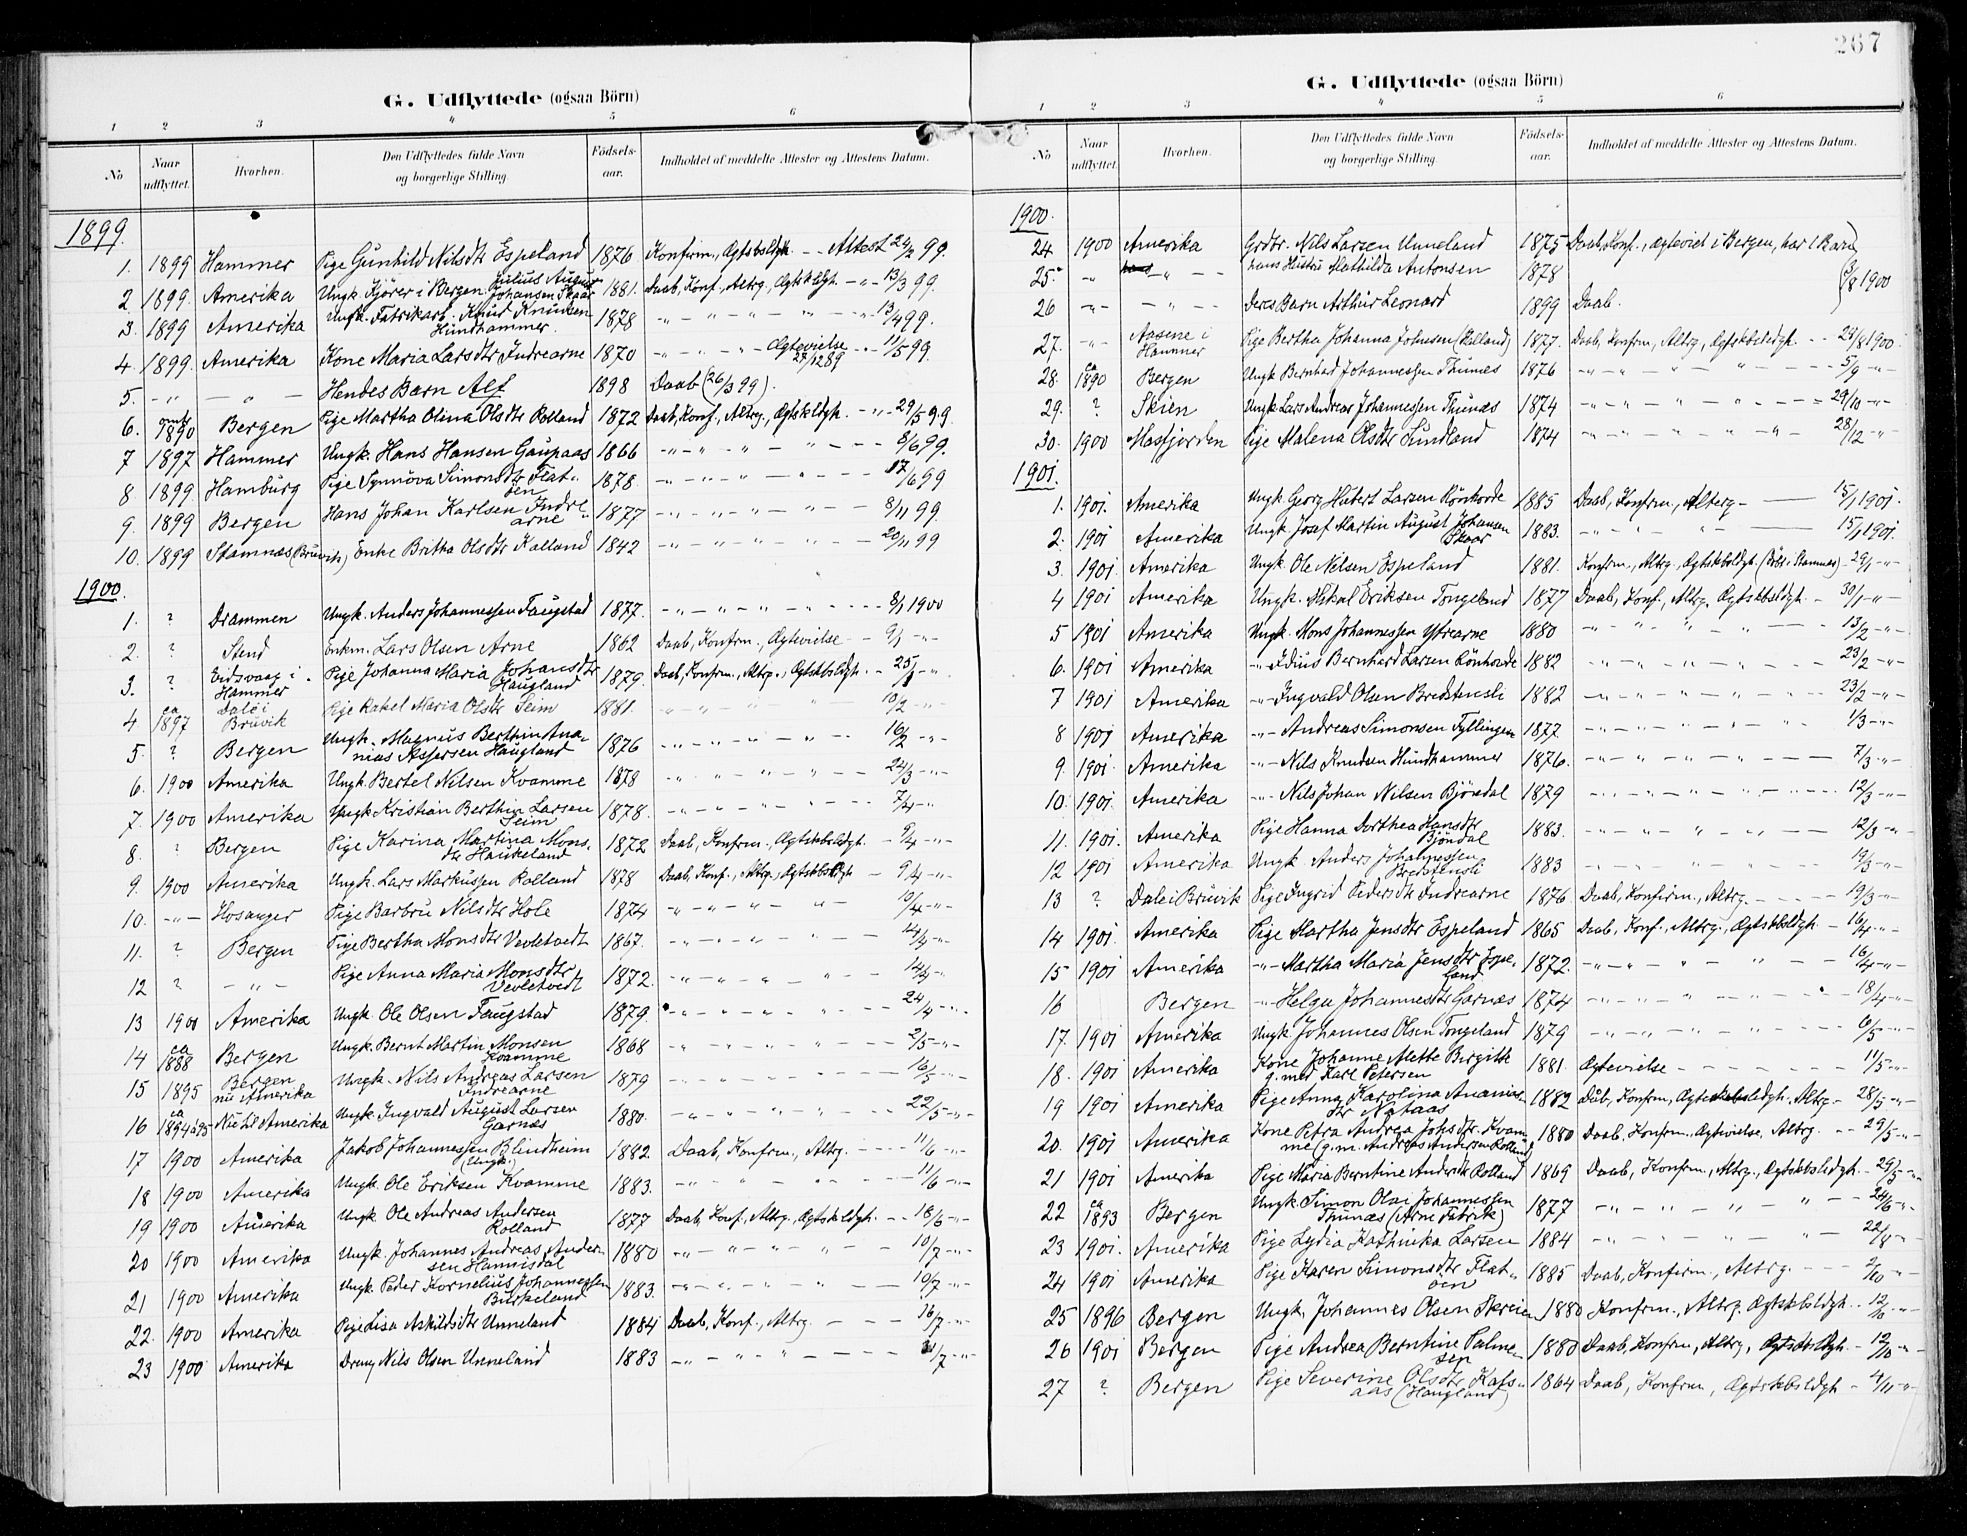 267
G. Udflyttede (ogsaa Börn)
1 2 3 4 5 6
No Naar udflyttet. Hvorhen. Den Udflyttedes fulde Navn og borgerlige Stilling. Födsels-aar. Indholdet af meddelte Attester og Attestens Datum.
1899.
1. 1899 Hammer Pige Gunhild Nilsdtr Espeland 1876 Konfirm., Ægtsbsldgh. - - Attest 24/2 99.
2. 1899. Amerika Ungk. Kjörer i Bergen Julius August Johansen Skaar 1881. Daab, Konf., Altrg., Ægtskldgh. - " - 13/3 99.
3. 1899 Amerika Ungk. Fabrikarb. Knud Knudsen Hundhammer 1878 - " - " - " - " - " - 13/4 99.
4. 1899. Amerika Kone Maria Larsdtr Indrearne 1870 - " - " - " - Ægtevielse 27/12 89 - " - 11/5 99.
5. - " - - " - Hendes Barn Alf 1898 Daab (26/3 99).
6. 1890 Bergen Pige Martha Olina Olsdtr Rolland 1872 Daab, Konf., Altrg., Ægtskldgh. - " - 29/5 99.
7 1897 Hammer Ungk. Hans Hansen Gaupaas 1866 - " - " - " - " - - 8/6 99.
8 1899 Hamburg Pige Synnöva Simonsdtr Flatöen 1878. - " - " - " - " - - 17/6 99
9. 1899 Bergen Hans Johan Karlsen Indrearne 1877 - " - " - " - " - - 8/11 99.
10. 1899 Stamnæs (Bruvik) Enke Britha Olsdtr Kalland 1842 - " - " - " - " - - 20/11 99
1900.
1. ? Drammen Ungk. Anders Johannessen Taugstad 1877. - " - " - " - " - - - 8/1 1900
2. ? Stend Enkm. Lars Olsen Arne 1862 Daab, Konfrm., Ægtevielse - 9/1 - " -
3. ? Eidsvaag i Hammer Pige Johanna Maria Johansdtr Haugland 1879. Daab, Konfrm., Altrg., Ægtskbsldgh. - 25/1 - " -
4 ca 1897 Dale i Bruvik Pige Rakel Maria Olsdtr Seim 1881. - " - " - " - " - 10/2 - " -
5. ? Bergen Ungk. Magnus Berthin Ananias Assersen Haugland 1876 - " - " - " - " - 16/2 - " -
6. 1900 Amerika Ungk. Bertel Nilsen Kvamme 1878 - " - " - " - " - 24/3 - " -
7. 1900 Amerika Ungk. Kristian Berthin Larsen Seim 1878. - " - " - " - " - 7/4 - " -
8. ? Bergen Pige Karina Martina Monsdtr Haukeland 1872 Daab, Konfrm., Ægtskbsldgh. - 9/4 - " -
9. 1900 Amerika Ungk. Lars Markussen Rolland 1878 Daab, Konf., Altrg., Ægtskbsldgh - 9/4 - " -
10. - " - Hosanger Pige Barbru Nilsdtr Hole 1874 - " - " - " - " - 10/4 - " -
11. ? Bergen Pige Bertha Monsdtr Vevletvedt 1867. - " - " - " - " - 14/4 - " -
12 ? - " - Pige Anna Maria Monsdtr Vevletvedt 1872. - " - " - " - " - 14/4 - " -
13 1900 Amerika Ungk. Ole Olsen Taugstad 1879. - " - " - " - " - 24/4 - " -
14 ca 1888 Bergen Ungk. Bernt Martin Monsen Kvamme 1868 - " - " - " - " - 2/5 - " -
15 1895 Bergen nu Amerika Ungk. Nils Andreas Larsen Indrearne 1879 - " - " - " - " - 16/5 - " -
16 ca 1894 à 95 Nu til Amerika Ungk. Ingvald August Larsen Garnæs 1880. - " - " - " - " - 22/5 - " -
17 1900 Amerika Jakob Johannessen Blindheim (Ungk.) 1882. Daab, Konfrm., Altrg. - - - 11/6 - " -
18 1900 Amerika Ungk. Ole Eriksen Kvamme 1883. - " - " - " - - 11/6 - " -
19 1900 Amerika Ungk. Ole Andreas Andersen Rolland 1877 Daab, Konf., Altrg., Ægtskldgh. - - 18/6 - " -
20 1900 Amerika Ungk. Johannes Andreas Andersen Hannisdal 1880 - " - " - " - " - 10/7 - " -
21 1900 Amerika Ungk. Peder Kornelius Johannessen Burkeland 1883. - " - " - " - " - 10/7 - " -
22. 1900 Amerika Pige Lisa Askildsdtr Unneland 1884 Daab, Konf., Altrg. - - - 16/7 - " -
23 1900 Amerika Dreng Nils Olsen Unneland 1883 - " - " - " - - /7 - " -
G. Udflyttede (ogsaa Börn)
1 2 3 4 5 6
No Naar udflyttet. Hvorhen. Den Udflyttedes fulde Navn og borgerlige Stilling. Födsels-aar. Indholdet af meddelte Attester og Attestens Datum.
1900.
24. 1900 Amerika Grdbr. Nils Larsen Unneland 1875 Daab, Konf., ægteviet i Bergen, har 1 Barn
25. - " - - " - hans Hustru Mathilda Antonsen 1878 /8 1900
26 - " - - " - Deres Barn Arthur Leonard 1899 Daab.
27. - " - Aasene i Hammer Pige Bertha Johanna Johnsen (Rolland) 1877. Daab, Konfrm, Altrg., Ægtskbsldgh. - - 28/8 1900.
28. ca 1890 Bergen Ungk Bernhad Johannessen Thunæs 1876 - " - " - " - " - 5/9 - " -
29. ? Skien Ungk Lars Andreas Johannessen Thunæs 1874 - " - " - " - " - 29/10 - " -
30. 1900 Masfjorden Pige Malena Olsdtr Sundland 1874 - " - " - " - " - 28/12 - " -
1901.
1. 1901. Amerika Ungk. Georg Hubert Larsen Rönhovde 1885 Daab, Konfrm., Altrg - 15/1 1901.
2. 1901 Amerika Ungk. Josef Martin August Johansen Skaar 1883. - " - " - " - 15/1 1901.
3. 1901. Amerika Ungk. Ole Nilsen Espeland 1881. Konfrm., Altrg., Ægtskbsldgh. - 29/1 - " -
4 1901 Amerika Ungk. Askal Eriksen Tongeland 1877 Daab, Konf., Altrg., Ægtskbsldgh. - 30/1 - " -
5 1901 Amerika Ungk. Mons Johannessen Ytrearne 1880 - " - " - " - " - 13/2 - " -
6. 1901 Amerika - " - Julius Bernhard Larsen Rönhovde 1882 - " - " - " - " - 23/2 - " -
7 1901 Amerika - " - Ingvald Olsen Bredstensli 1882 - " - " - " - " - 23/2 - " -
8 1901 Amerika - " - Andreas Simonsen Fyllingen 1877 - " - " - " - " - 1/3 - " -
9. 1901. Amerika - " - Nils Knudsen Hundhammer 1876. - " - " - " - " - 7/3 - " -
10. 1901. Amerika - " - Nils Johan Nilsen Björndal 1879 - " - " - " - " - 12/3 - " -
11. 1901. Amerika Pige Hanna Dorthea Hansdtr Björndal 1883. - " - " - " - " - 12/3 - " -
12 1901 Amerika Ungk. Anders Johannessen Bredstensli 1883 - " - " - " - " - 19/3 - " -
13 ? Dale i Bruvik Pige Ingrid Pedersdtr Indrearne 1876 Daab, Konfirm., Altrg. - - - 19/3 - " -
14 1901. Amerika Pige Martha Jensdtr Espeland 1865 Daab, Konf., Altrg., Ægtskbsldgh. - 16/4 - " -
15 1901 Amerika - " - Martha Maria Jensdtr Espeland 1872. - " - " - " - " - 16/4 - " -
16 Bergen - " - Helga Johannesdtr Garnæs 1874 - " - " - " - " - 18/4 - " -
17. 1901 Amerika Ungk. Johannes Olsen Tongeland 1879 - " - " - " - " - 6/5 - " -
18. 1901 Amerika Kone Johanne Mette Birgitte g. med Karl Petersen 1881. Ægtevielse - - - 11/5 - " -
19 1901 Amerika Pige Anna Karolina Ananiasdtr Nataas 1882 Daab, Konfrm, Ægtskbsldgh. Altrg - 28/5 - " -
20. 1901 Amerika Kone Petra Andrea Johsdtr Kvamme (g. m. Andreas Andersen Rolland) 1880 Daab, Konfrm., Ægtevielse, Altrg. - - 29/5 - " -
21 1901 Amerika Pige Maria Berntine Andersdtr Rolland 1869 Daab, Konfrm., Altrg., Ægtskbsldgh. - 29/5 - " -
22 ca 1893 Bergen Ungk Simon Olai Johannessen Thunæs (Arne Fabrik) 1877 - " - " - " - " - 24/6 - " -
23 1901. Amerika Pige Lydia Kathinka Larsen 1884 - " - " - " - " - 22/8 - " -
24 1901 Amerika Pige Karen Simonsdtr Flatöen 1885 Daab, Konfirm., Altrg. - - - 2/10 - " -
25 1896 Bergen Ungk. Johannes Olsen Skreien 1880 Konfrm., Altrg, Ægtskbsldgh. - 12/10 - " -
26 1901 Bergen Pige Andrea Berntine Palmesen 1880 Daab, Konfrm, Altrg, Ægtskbsldgh. - 12/10 - " -
27 ? Bergen Pige Severine Olsdtr Kalsaas (Haugland) 1864 Daab, Konfrm, Ægtskbsldgh - 4/11 - " -